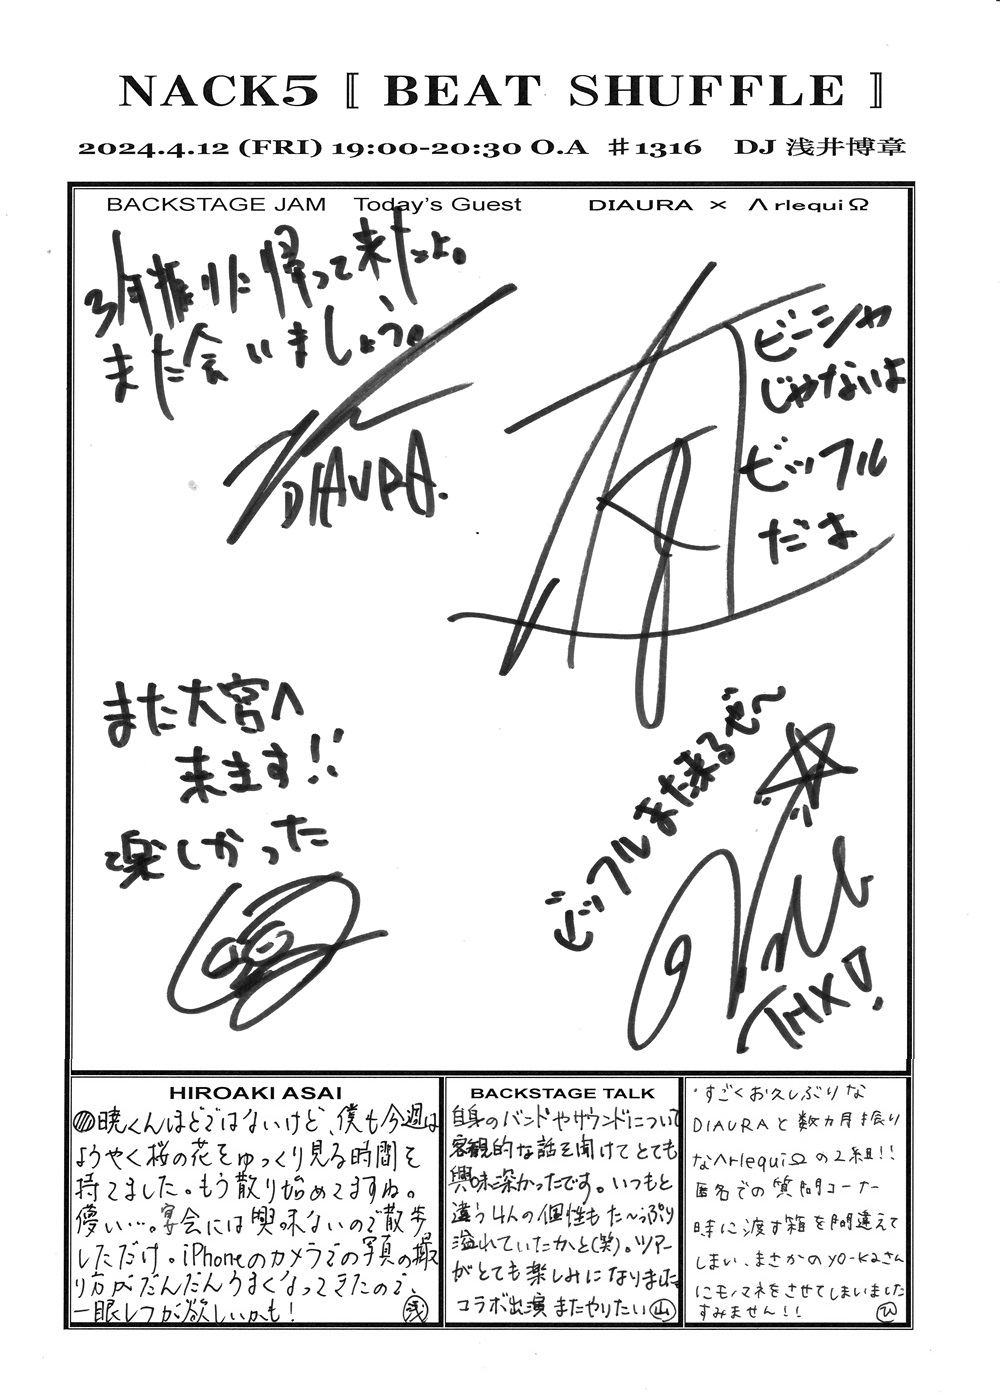 NACK5 〚 BEAT SHUFFLE 〛
2024.4.12 (FRI) 19:00-20:30 O.A ♯1316 DJ 浅井博章
BACKSTAGE JAM Today's Guest DIAURA × ΛrlequiΩ
3月振りに帰って来たよ。
また会いましょう。
DIAURA.
ビーシャ
じゃないよ
ビッフル
だよ
また大宮へ
来ます!!
楽しかった
ビッフルまた来るぜ〜
THX!
HIROAKI ASAI
暁くんほどではないけど、僕も今週は
ようやく桜の花をゆっくり見る時間を
持てました。もう散り始めてますね。
儚い…。宴会には興味ないので散歩
しただけ。iPhoneのカメラでの写真の撮
り方がだんだんうまくなってきたので、
一眼レフが欲しいかも! 浅
BACKSTAGE TALK
自身のバンドやサウンドについて
客観的な話を聞けてとても
興味深かったです。いつもと
違う4人の個性もた〜っぷり
溢れていたかと(笑)。ツアー
がとても楽しみになりました。
コラボ出演またやりたい 山
・すごくお久しぶりな
DIAURAと数カ月振り
なΛrlequiΩの2組!!
匿名での質問コーナー
時に渡す箱を間違えて
しまい、まさかのyo-kaさん
にモノマネをさせてしまいました
すみません!! ひ